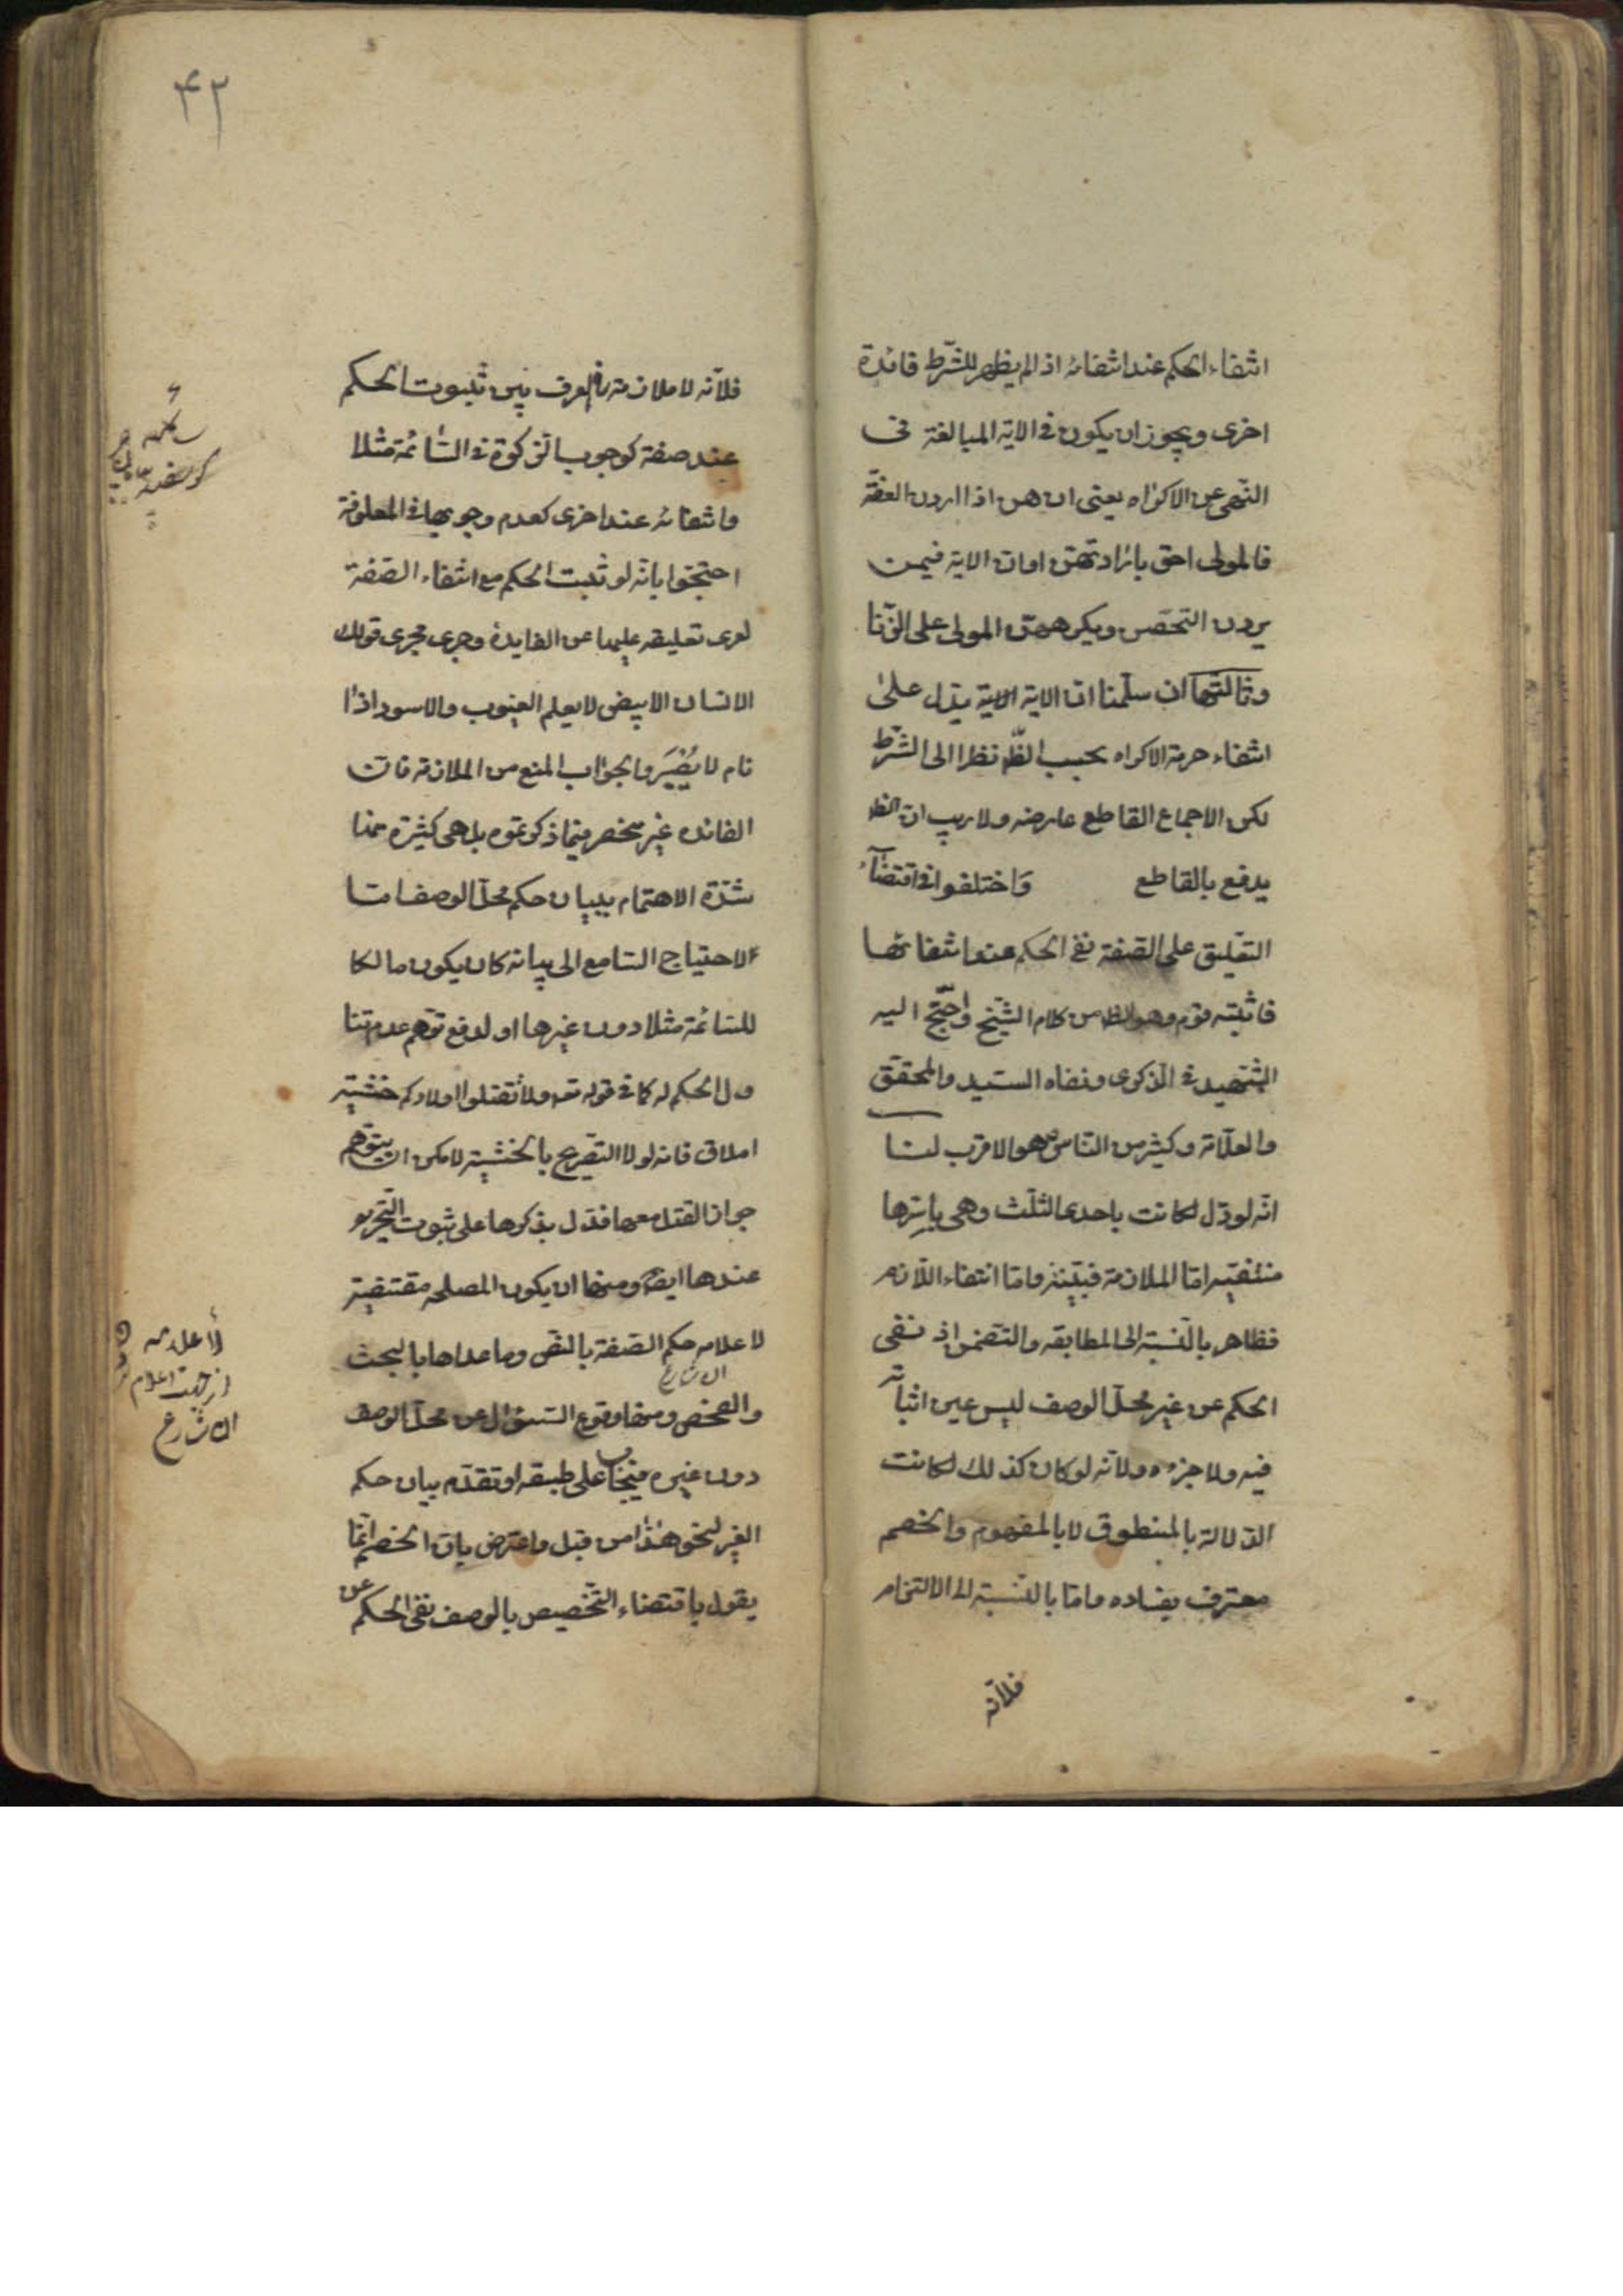 انتفاء الحكم عند انتفائه اذا لم يظهر للشرط فائدة
اخرى ويجوز ان يكون في الاية المبالغة في
النهي عن الاكراه يعني ان هن اذا اردن العفة
فالمولى احق بارادتهن او ان الاية فيمن
يردن التحصن ويكرههن المولى على الزنا
وثالثها ان سلمنا ان الاية الاية يدل على
انتفاء حرمة الاكراه بحسب الظ نظرا الى الشرط
لكن الاجماع القاطع عارضه ولا ريب ان الظ
يدفع بالقاطع واختلفوا في اقتضآء
التعليق على الصفة نفي الحكم عند انتفائها
فاثبته قوم وهو الظ من كلام الشيخ واحتج اليه
الشهيد في الذكرى ونفاه السيد والمحقق
والعلامة وكثير من الناس وهو الاقرب لنا
انه لو دل لكانت باحدى الثلث وهي باسرها
منتفية اما الملازمة فبينة واما انتفاء اللازم
فظاهر بالنسبة الى المطابقه والتضمن اذ نفي
الحكم عن غير محل الوصف ليس عين اثباته
فيه ولا جزءه ولانه لو كان كذلك لكانت
الدلالة بالمنطوق لا بالمفهوم والخصم
معترف بفساده واما بالنسبة الى الالتزام
فلانه
۴۲
فلانه لا ملازمة في العرف بين ثبوت الحكم
عند صفة كوجوب الزكوة في السائمة مثلا
وانتفائه عند اخرى كعدم وجوبها في المعلوفة
احتجوا بانه لو ثبت الحكم مع انتفاء الصفة
لعرى تعليقه عليها عن الفايدة وجرى مجرى قولك
الانسان الابيض لا يعلم الغيوب والاسود اذا
نام لا يبصر والجواب المنع من الملازمة فان
الفائده غير منحصر فيما ذكرتموه بل هي كثيرة منها
شدة الاهتمام ببيان حكم محل الوصف اما
لاحتياج السامع الى بيانه كان يكون مالكا
للسائمة مثلا دون غيرها او لدفع توهم عدم تنا
ول الحكم له كما في قوله تعه ولا تقتلوا اولادكم خشية
املاق فانه لولا التصريح بالخشية لامكن ان يتوهم
جواز القتل معها فدل بذكرها على ثبوت التحريم
عندها ايضا ومنها ان يكون المصلحه مقتضية
لاعلامه حكم الصفة بالنص وما عداها بالبحث
الشارع
والفحص ومنها وقوع السؤال عن محل الوصف
دون غيره فيجاب على طبقه او تقدم بيان حكم
الغير لنحو هذا من قبل واعترض بان الخصم انما
يقول باقتضاء التخصيص بالوصف نفي الحكم عن
كوسفند
لاعلامه
از جهت اعلام
الشارع